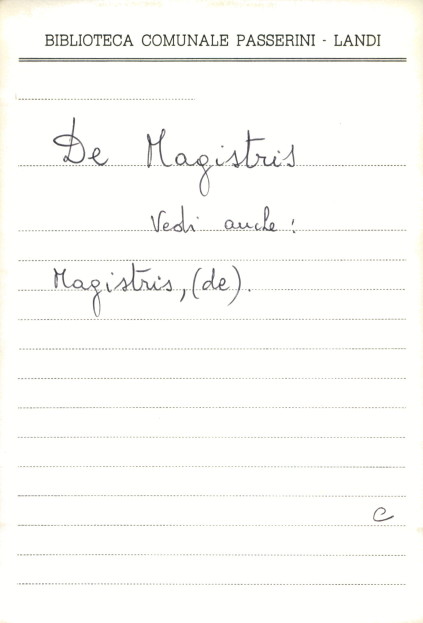 BIBLIOTECA COMUNALE PASSERINI - LANDI
De Magistris
Vedi anche:
Magistris, (de).
C